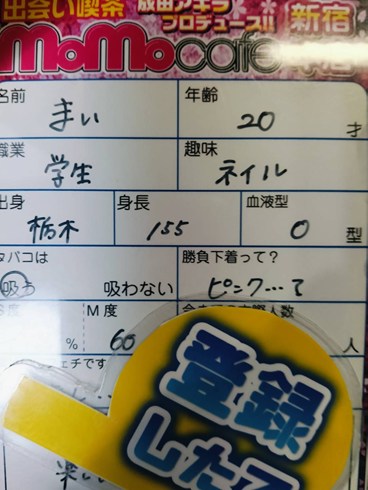 出会い喫茶 成田アキラ
プロデュース!! 新宿
MoMocafe 本店
名前 まい 年齢 20 才
職業 学生 趣味 ネイル
出身 栃木 身長 155 血液型 O 型
タバコは 吸う 吸わない
勝負下着って? ピンク…て
S度 % M度 60 人
フェチです
登録
した